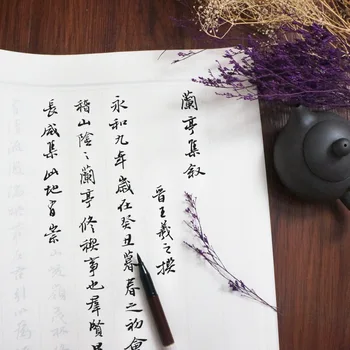 蘭亭集叙
晉王羲之撰
永和九年歲在癸丑暮春之初會
稽山陰之蘭亭修禊事也群賢
長咸集此地有崇